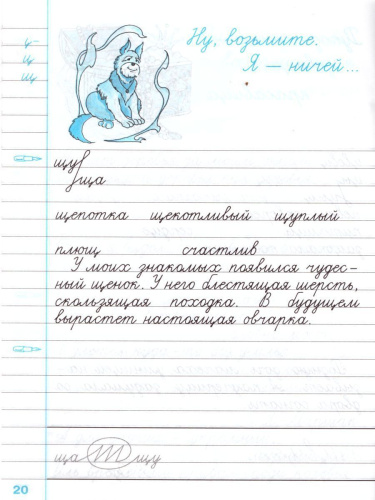 Ну, возьмите.
Я — ничей...
ц-
щ
щу
щу
ща
щепотка щекотливый щуплый
плющ счастлив
У моих знакомых появился чудес-
ный щенок. У него блестящая шерсть,
скользящая походка. В будущем
вырастет настоящая овчарка.
ща щу
20